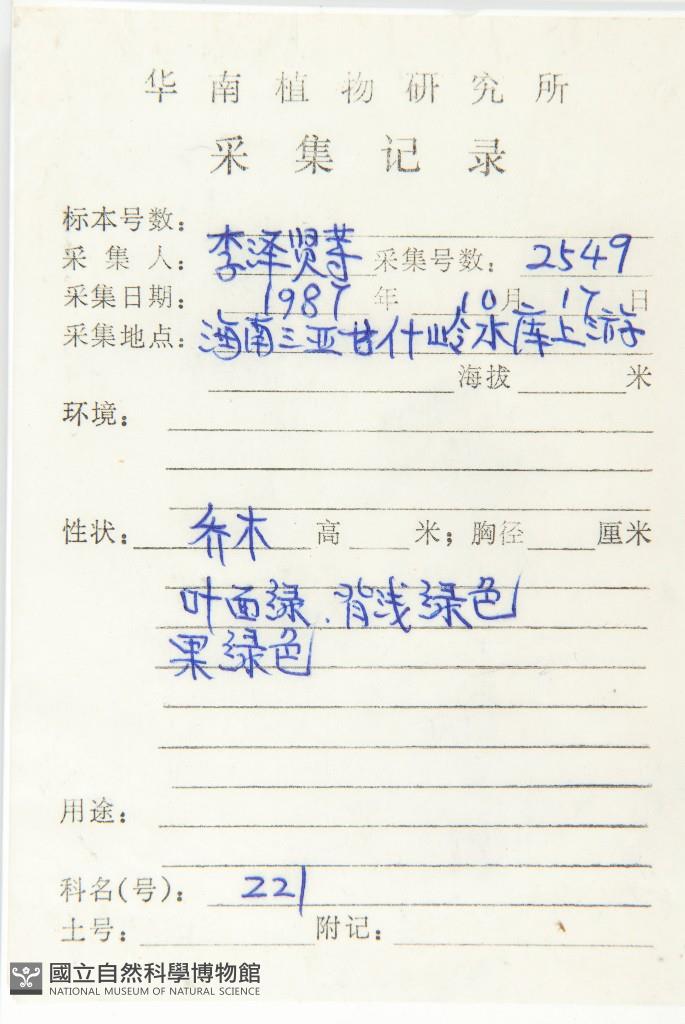 华南植物研究所
采集记录
标本号数：
采集人：李泽贤等 采集号数：2549
采集日期：1987年10月17日
采集地点：海南三亚甘什岭水库上游
海拔 米
环境：
性状：乔木 高 米；胸径 厘米
叶面绿．背浅绿色
果绿色
用途：
科名(号)：221
土号： 附记：
國立自然科學博物館
NATIONAL MUSEUM OF NATURAL SCIENCE